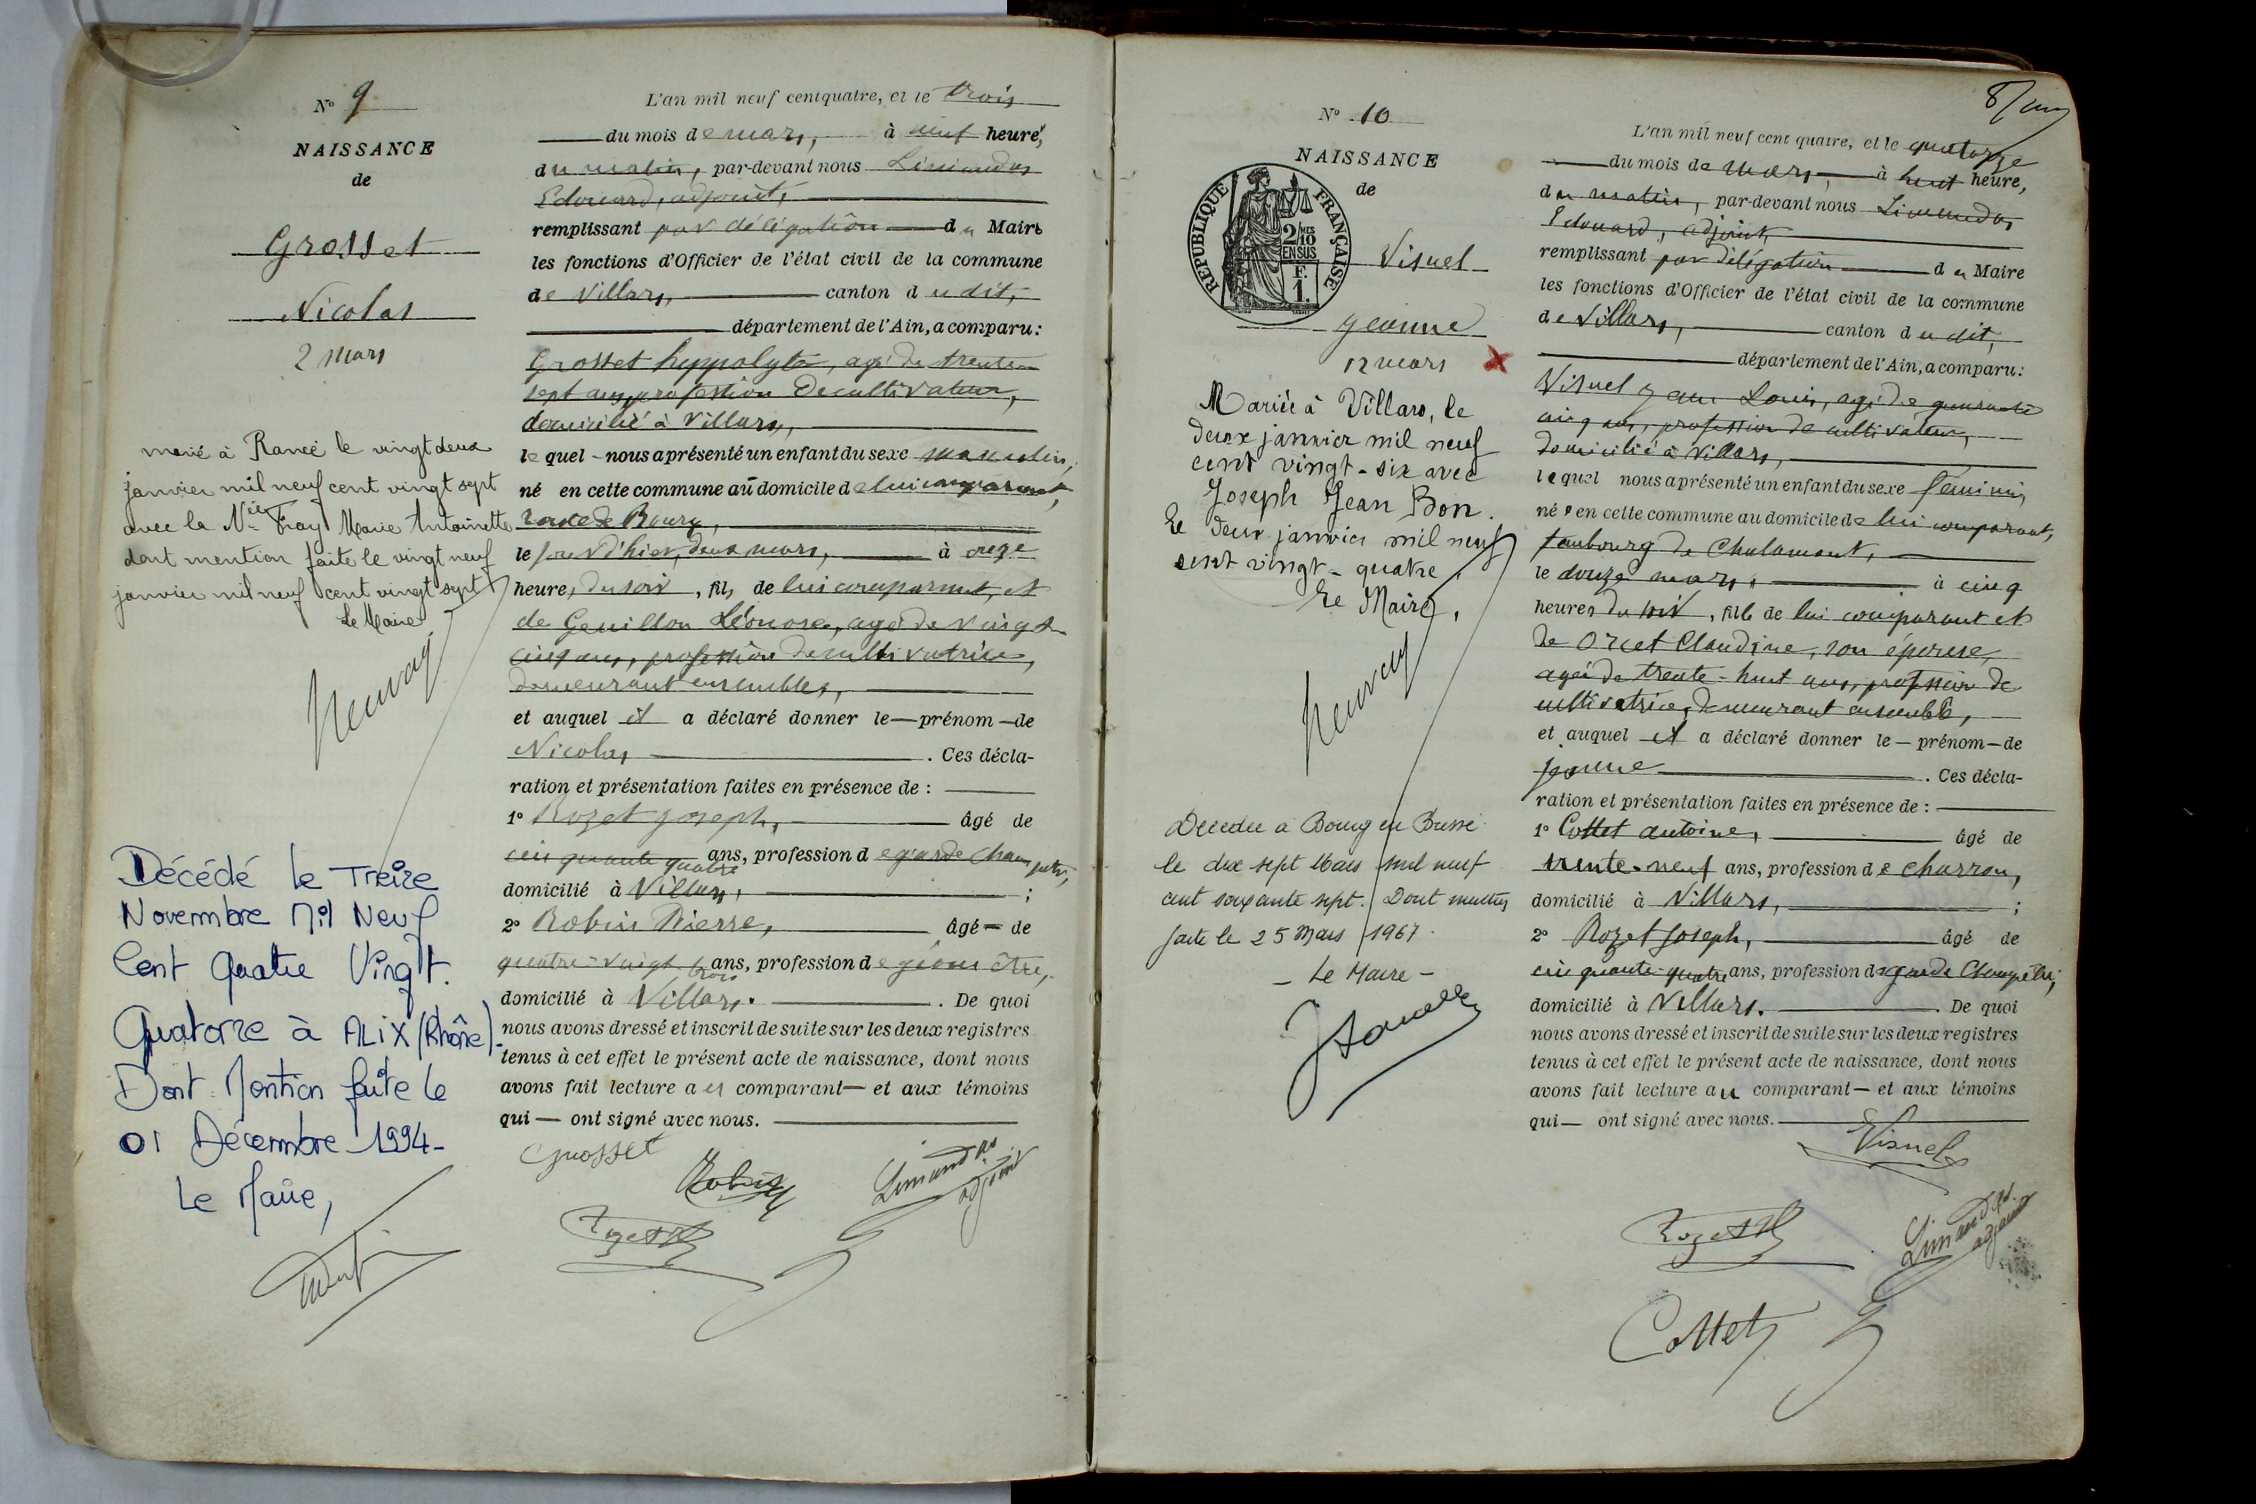 Nº 9
NAISSANCE
de
Grosset
Nicolas
2 mars
marié à Rancé le vingt deux
janvier mil neuf cent vingt sept
avec la Née Fray Marie Antoinette
dont mention faite le vingt neuf
janvier mil neuf cent vingt sept
Le Maire
Décédé le Treize
Novembre Mil Neuf
Cent Quatre Vingt.
Quatorze à ALIX (Rhône).
Dont Mention faite le
01 Décembre 1994-
Le Maire,
L'an mil neuf cent quatre, et le trois
du mois de mars, à neuf heures,
du matin, par-devant nous Limandas
Edouard, adjoint,
remplissant par délégation du Maire
les fonctions d'Officier de l'état civil de la commune
de Villars, canton du dit,
département de l'Ain, a comparu:
Grosset hyppolyte, agé de trente
sept ans, profession de cultivateur,
domicilié à Villars,
lequel nous a présenté un enfant du sexe masculin,
né en cette commune au domicile de lui comparant,
route de Bourg,
le jour d'hier, deux mars, à onze
heures du soir, fils de lui comparant, et
de Genillon Léonore, agée de vingt
cinq ans, profession de cultivatrice,
demeurant ensembles,
et auquel il a déclaré donner le prénom de
Nicolas. Ces décla-
ration et présentation faites en présence de :
1º Rozet Joseph, âgé de
cinquante quatre ans, profession de garde champêtre,
domicilié à Villars, ;
2º Robin Pierre, âgé de
quatre-vingt trois ans, profession de
domicilié à Villars. De quoi
nous avons dressé et inscrit de suite sur les deux registres
tenus à cet effet le présent acte de naissance, dont nous
avons fait lecture au comparant et aux témoins
qui ont signé avec nous.
Grosset
Robin
Limandas
adjoint
Rozet
8/
Nº 10
NAISSANCE
de
REPUBLIQUE FRANÇAISE
2/10 MES
EN SUS
F.
1.
Visuel
Jeanne
12 mars
Mariée à Villars, le
deux janvier mil neuf
cent vingt-six avec
Joseph Jean Bon.
Le deux janvier mil neuf
cent vingt-quatre.
Le Maire,
Décédée à Bourg en Bresse
le dix sept Mars mil neuf
cent soixante sept. Dont mention
faite le 25 Mars 1967.
- Le Maire -
L'an mil neuf cent quatre, et le quatorze
du mois de mars, à huit heure,
du matin, par-devant nous Limandas
Edouard, adjoint,
remplissant par délégation du Maire
les fonctions d'Officier de l'état civil de la commune
de Villars, canton du dit,
département de l'Ain, a comparu:
Visuel Jean Louis, agé de quarante
cinq ans, profession de cultivateur,
domicilié à Villars,
lequel nous a présenté un enfant du sexe féminin,
née en cette commune au domicile de lui comparant,
faubourg de Chalamont,
le douze mars, à cinq
heures du soir, fille de lui comparant et
de Orcet Claudine, son épouse,
agée de trente-huit ans, profession de
cultivatrice, demeurant ensemble,
et auquel il a déclaré donner le prénom de
Jeanne. Ces décla-
ration et présentation faites en présence de :
1º Cottet antoine, âgé de
trente-neuf ans, profession de charron,
domicilié à Villars, ;
2º Rozet Joseph, âgé de
cinquante-quatre ans, profession de garde champêtre,
domicilié à Villars. De quoi
nous avons dressé et inscrit de suite sur les deux registres
tenus à cet effet le présent acte de naissance, dont nous
avons fait lecture au comparant et aux témoins
qui ont signé avec nous.
Visuel
Rozet
Limandas
adjoint
Cottet